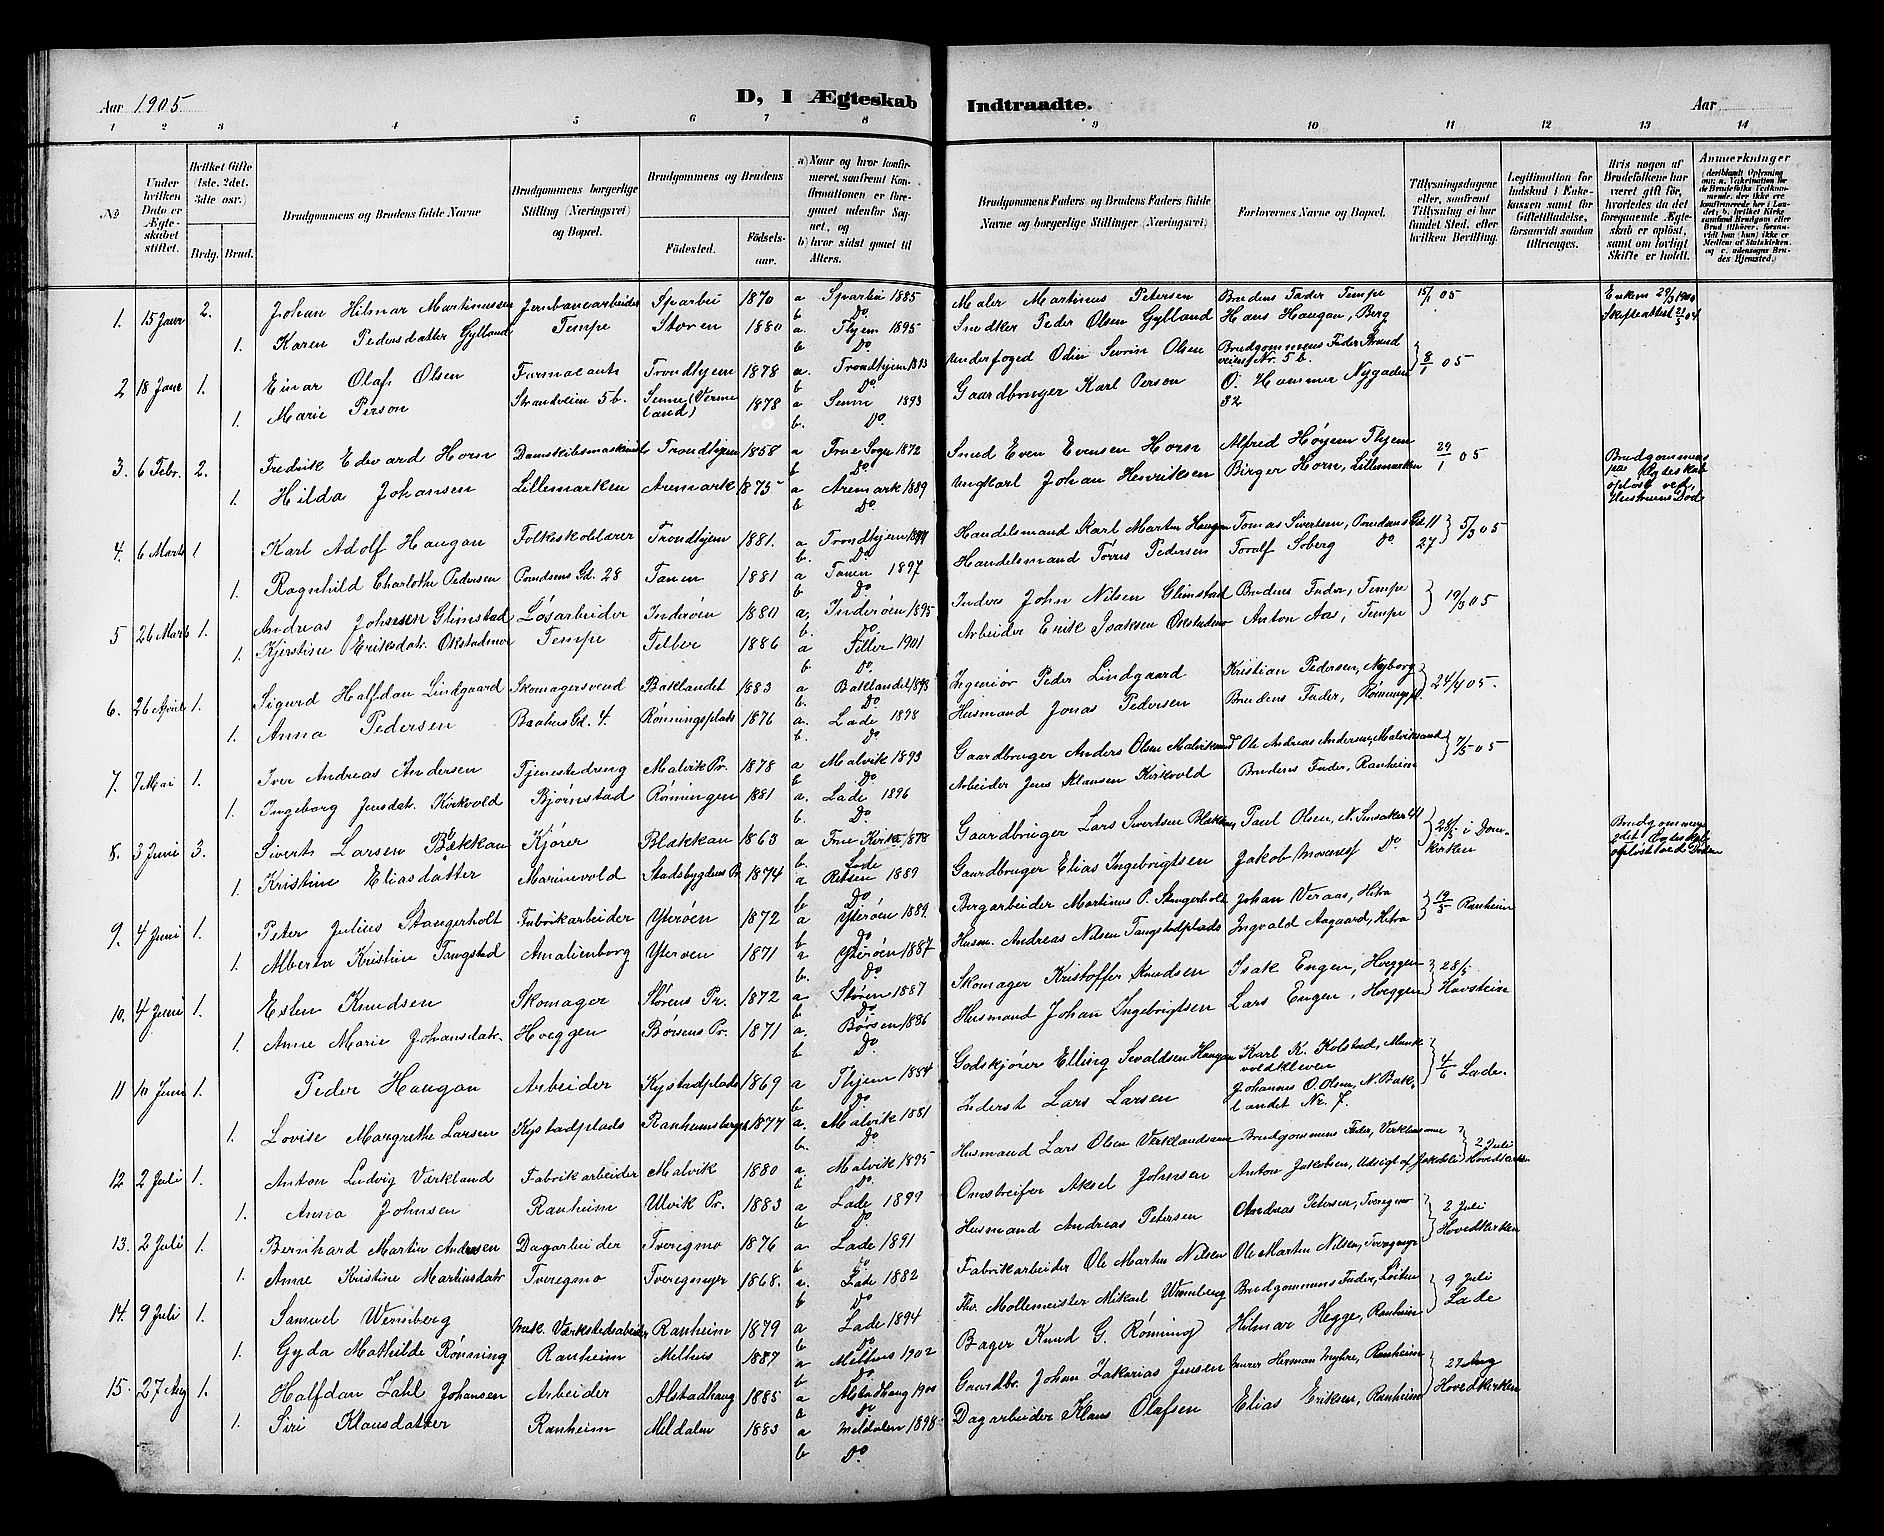 Aar 1905
D, I Ægteskab Indtraadte.
Aar
1 2 3 4 5 6 7 8 9 10 11 12 13 14
No
Under hvilken Dato er Ægteskabet stiftet.
Hvilket Gifte (1ste, 2det, 3die osv.)
Brdg. Brud.
Brudgommens og Brudens fulde Navne
Brudgommens borgerlige Stilling (Næringsvei) og Bopæl.
Brudgommens og Brudens
Födested.
Födselsaar.
a) Naar og hvor konfirmeret, samt om Konfirmationen er foregaaet udenfor Sognet, og
b) hvor sidst gaaet til Alters.
Brudgommens Faders og Brudens Faders fulde Navne og borgerlige Stillinger (Næringsvei)
Forlovernes Navne og Bopæl.
Tillysningsdagene eller, saafremt Tillysning ei har fundet Sted, efter hvilken Bevilling.
Legitimation for Indskud i Enkekassen samt for Giftetilladelse, forsaavidt saadan tiltrænges.
Hvis nogen af Brudefolkene har været gift för, hvorledes da det foregaaende Ægteskab er oplöst, samt om lovligt Skifte er holdt.
Anmerkninger
1. 15 Janr 2. Johan Hilmar Martinussen Jernbanearbeider Sparbu 1870 a Sparbu 1885 b Do Maler Martinus Petersen Brudens Fader Tempe 15/1 05 Enkem. 29/3 1900
1. Karen Pedersdatter Gylland Tempe Storen 1880 a. Thjem 1895 b. Do Snedker Peder Olsen Gylland Hans Haugan, Berg Skifteattest 21/5 04
2 18 Janr 1. Einar Olaf Olsen Farmaceut Trondhjem 1878 a. Trondhjem 1893 b. Do Underfoged Odin Sevrin Olsen Brudgommens Fader Strandveien Nr. 5 b. 8/1 05
1. Marie Person Strandveien 5 b. Sunne (Vermeland) 1878 a Sunne 1893 b. Do. Gaardbruger Karl Person O. Hammer Nygaden 32
3. 6 Febr. 2. Fredrik Edvard Horn Dampskibsmaskinist Trondhjem 1858 a Frue Sogn 1872 b Do Smed Even Evensen Horn Alfred Höyem Thjem 29/1 05 Brudgommens
1. Hilda Johansen Lillemarken Aremark 1875 a Aremark 1889 b Do Ungkarl Johan Henriksen Birger Horn, Lillemarken Ægteskab opløst ved Hustruens Død
4. 6 Marts 1 Karl Adolf Haugan Folkeskolelærer Trondhjem 1881. a Trondhjem b. Do Handelsmand Karl Martin Haugan Tomas Sivertsen, Prindsens Gd. 11 5/3 05
1. Ragnhild Charlothe Pedersen Prindsens Gd. 28 Tanen 1881 a Tanen 1897 b Do Handelsmand Torris Pedersen Toralf Soberg Do. 27
5 26 Marts 1. Andreas Johnsen Glimstad Løsarbeider Inderøen 1880 a, Inderøen 1895 b. Do. Inders John Nilsen Glimstad Brudens Fader, Tempe 19/3 05
1. Kjerstine Eriksdatr. Økstadmoe Tempe Tilber 1886 a Tiller 1901 b Do. Arbeider Erik Isaksen Økstadmoe Anton Aas, Tempe
6. 26 April 1. Sigurd Halfdan Lindgaard Skomagersvend Baklandet 1883 a Baklandet 1898 b. Do Ingeniør Peder Lindgaard Kristian Pedersen, Nyborg 24/4 05.
1. Anna Pedersen Baahus Gd. 4. Rønningsplads 1876 a. Lade 1898 b. Do Husmand Jonas Pedersen Brudens Fader, Rønningspl.
7. 7 Mai 1. Iver Andreas Andersen Tjenestedreng Malvik Pr. 1878 a Malvik 1893 b Do Gaardbruger Anders Olsen Malviksand Ole Andreas Andersen, Malviksand 7/5 05
1. Ingeborg Jensdatr. Kirkvold Bjørnstad Rønningen 1881 a. Lade 1896 b. Do. Arbeider Jens Klausen Kirkvold Brudens Fader, Ranheim
8. 3 Juni 3. Sivert Larsen Blækkan Kjører Blækkan 1863 a Frue Kirke 1878 b Lade Gaardbruger Lars Sivertsen Blækkan Paul Olsen, N. Singsaker 41 28/5 i Domkirken Brudgommens 2det Ægteskab opløst ved Døden
1 Kristine Eliasdatter Marinevold Stadsbygdens Pr 1874 a Ritsen 1889 b Do Gaardbruger Elias Ingebrigtsen Jakob Moxness Do
9. 4 Juni 1. Peter Julius Stangerholt Fabrikarbeider Yterøen 1872 a Yterøen 1889. b Do Bergarbeider Martinus P. Stangerholt Johan Veraas, Hitra 19/5 Ranheim
1. Alberta Kristine Tangstad Amalienborg Yterøen 1871 a Yterøen 1887 b. Do. Husm. Andreas Nilsen Tangstadplads Ingvald Aagaard, Hitra
10. 4 Juni 1. Esten Knudsen Skomager Størens Pr. 1872 a Støren 1887 b Do Skomager Kristoffer Knudsen Isak Engen, Hoeggen 28/5 Havstein
1. Anne Marie Johansdatr. Hoeggen Børsens Pr. 1871 a. Børsen 1886 b Do. Husmand Johan Ingebrigtsen Lars Engen, Hoeggen
11 10 Juni 1. Peder Haugan Arbeider Kystadplads 1869 a Thjem 1884 b Do. Godskjører Elling Sivaldsen Haugan Karl K. Kolstad, Munkvoldkleven 4/6 Lade.
1. Lovise Margrethe Larsen Kystadplads Ranheimsberget 1877 a. Malvik 1881 b. Do. Inderst Lars Larsen Johannes O. Olsen, N. Baklandet Nr. 7.
12 2 Juli 1. Anton Ludvig Værkland Fabrikarbeider Malvik 1880 a, Malvik 1895 b Do. Husmand Lars Olsen Værklandsmo Brudgommens Fader, Verklandsmo 2 Juli Hovedkirken
1. Anna Johnsen Ranheim Ulvik Pr. 1883 a Lade 1899 b Do. Omstreifer Aksel Johnsen Anton Jakobsen, Udsigt af Jakobsli
13. 2 Juli 1. Bernhard Martin Andersen Dagarbeider Tveregmo 1876 a. Lade 1891 b Do Husmand Andreas Petersen Andreas Petersen, Tveregmo 2 Juli Hovedkirken
1. Anne Kristine Martinsdatr Tveregmo Tveregmyr 1868. a. Lade 1882 b Do Fabrikarbeider Ole Martin Nilsen Ole Martin Nilsen, Tveregmyr
14. 9 Juli 1. Samuel Wennberg Mek. Værkstedsarbeider Ranheim 1879 a Lade 1894 b Do Fhv. Møllemester Mikael Wennberg Brudgommens Fader, 9 Juli Lade
1. Gyda Mathilde Rønning Ranheim Melhus 1887 a Melhus 1902 b Do Bager Knud G. Rønning Hilmar Hegge, Ranheim
15. 27 Aug 1. Halfdan Zahl Johansen Arbeider Alstadhaug 1885 a Alstadhaug 1900 b Do Gaardbr. Johan Zakarias Jensen Murer Herman Myhre, Ranheim 27 Aug Hovedkirken
1. Siri Klausdatter Ranheim Meldalen 1883 a Meldalen 1898 b Do. Dagarbeider Klaus Olafsen Elias Eriksen, Ranheim